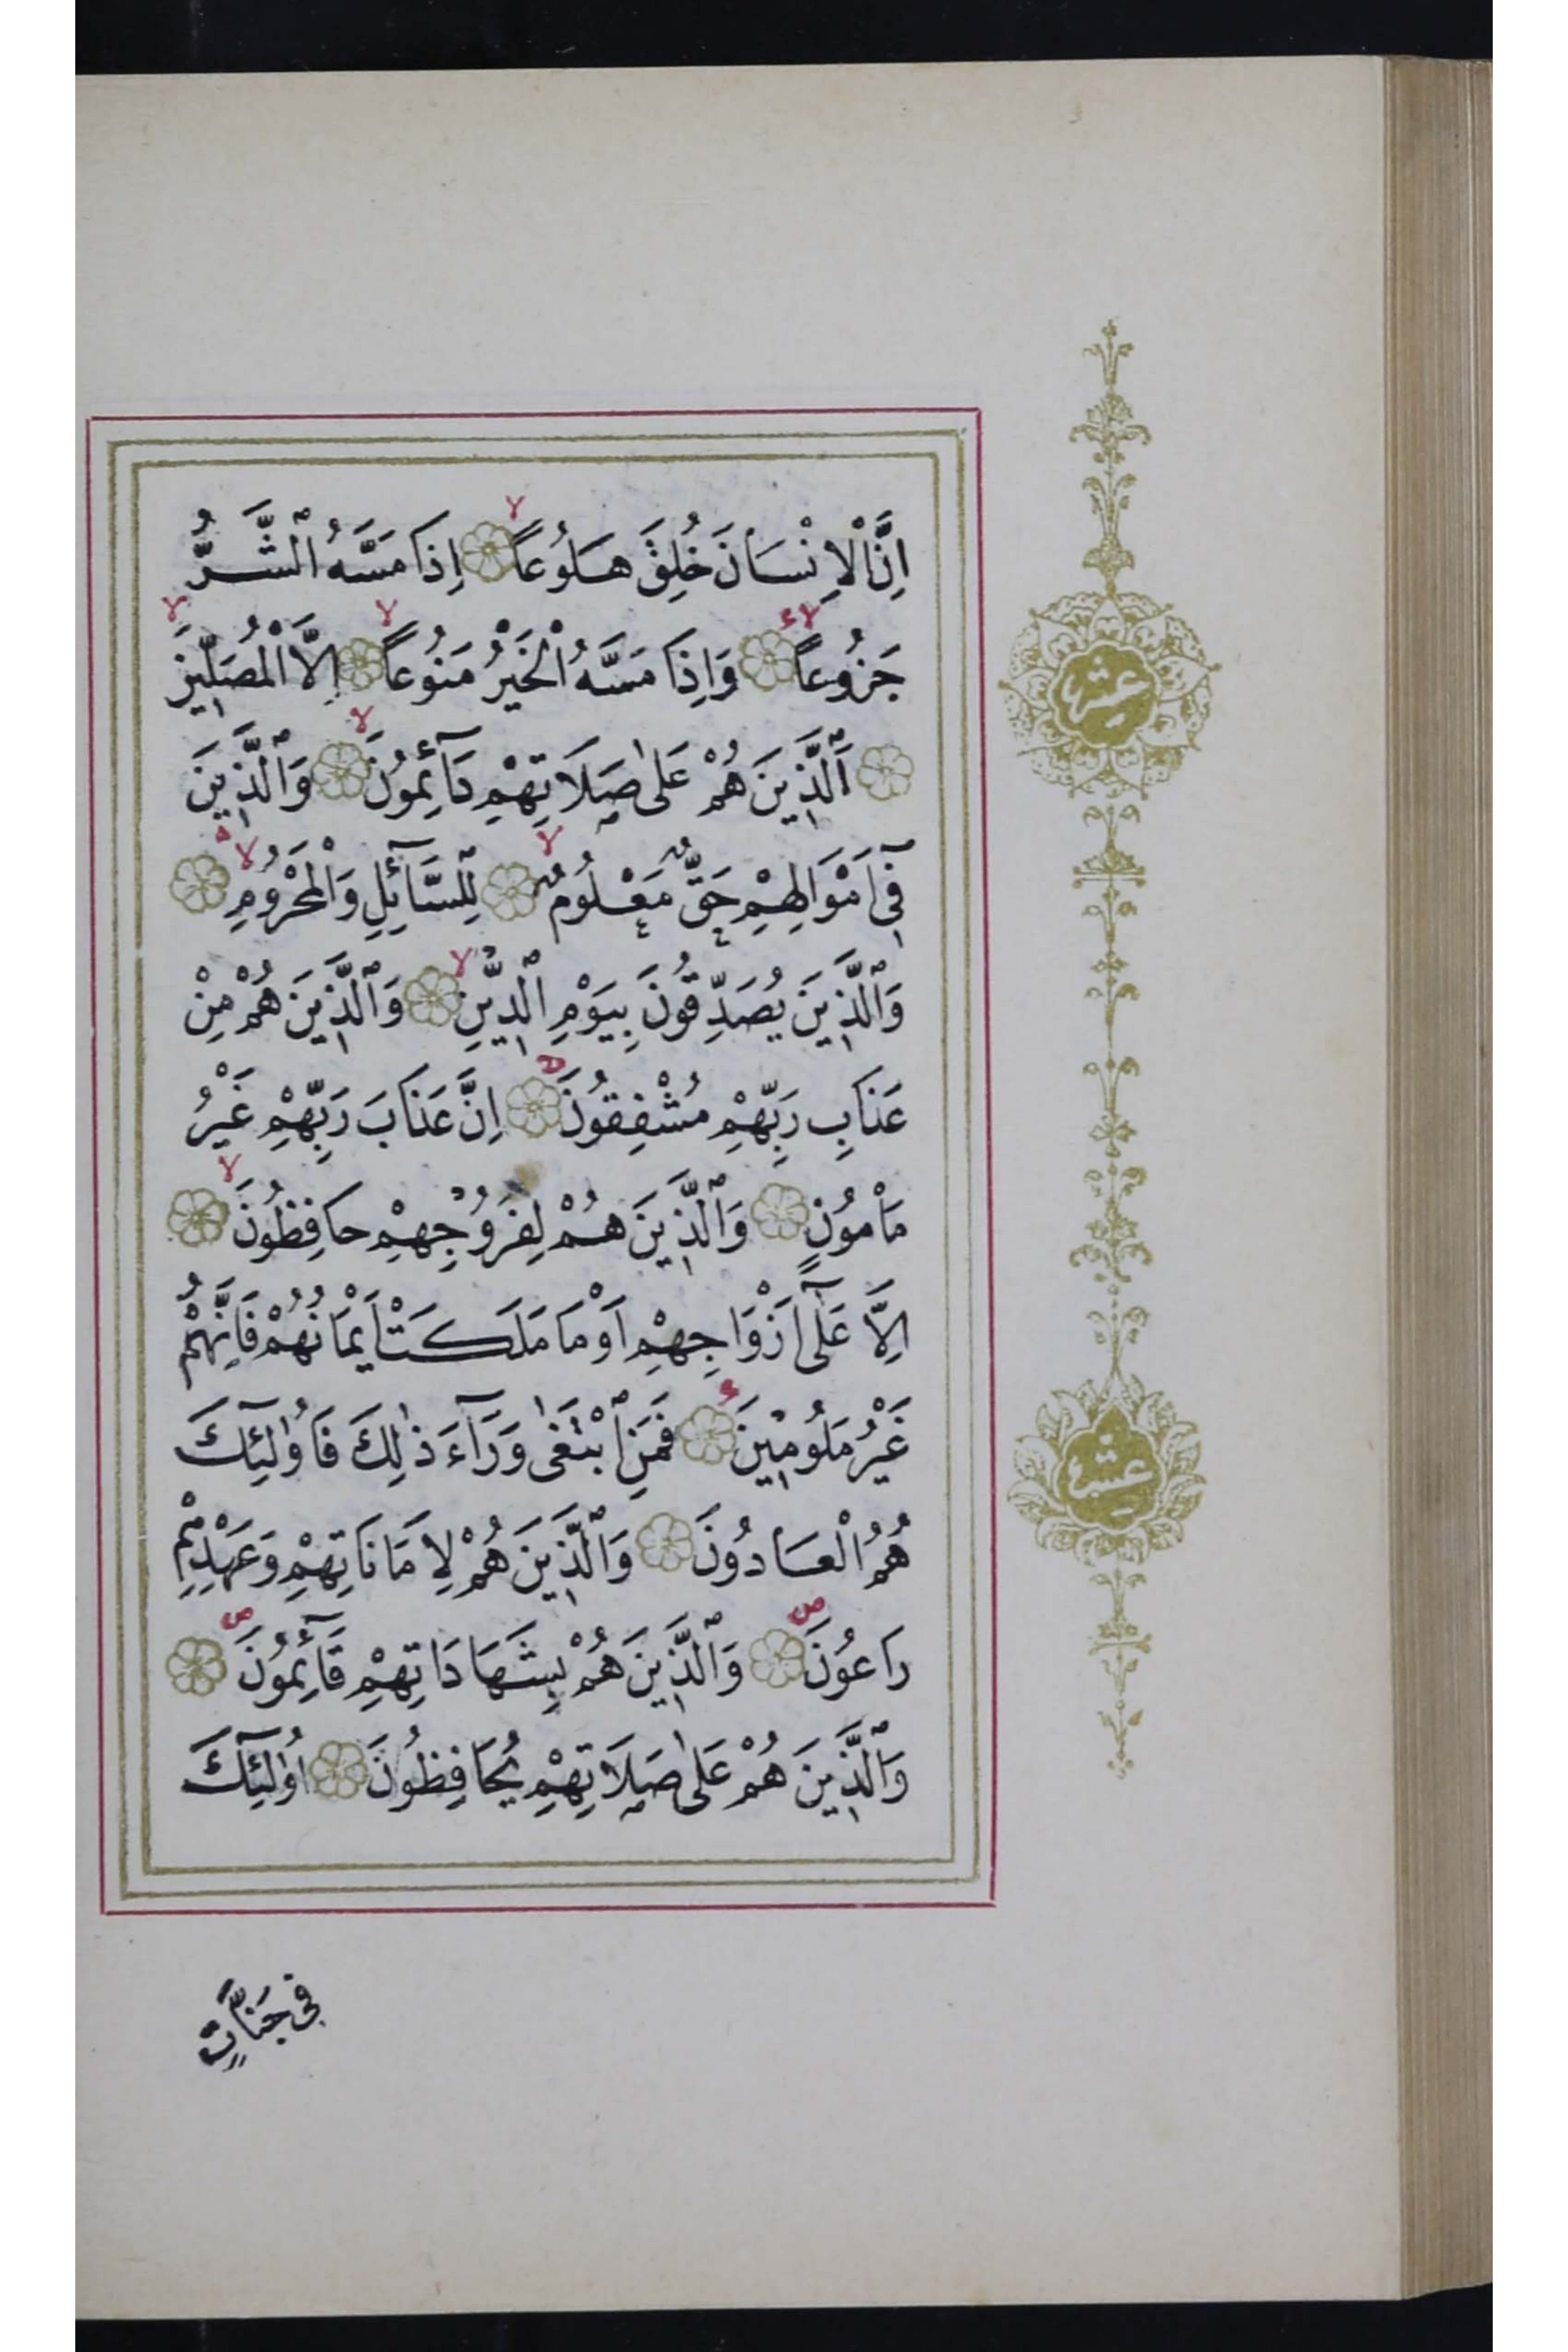 اِنَّ الْاِنْسَانَ خُلِقَ هَلُوعًا اِذَا مَسَّهُ الشَّرُّ
جَزُوعًا وَاِذَا مَسَّهُ الْخَيْرُ مَنُوعًا اِلَّا الْمُصَلِّينَ
اَلَّذِينَ هُمْ عَلٰى صَلَاتِهِمْ دَآئِمُونَ وَالَّذِينَ
فِٓى اَمْوَالِهِمْ حَقٌّ مَعْلُومٌ لِلسَّآئِلِ وَالْمَحْرُومِ
وَالَّذِينَ يُصَدِّقُونَ بِيَوْمِ الدِّينِ وَالَّذِينَ هُمْ مِنْ
عَذَابِ رَبِّهِمْ مُشْفِقُونَ اِنَّ عَذَابَ رَبِّهِمْ غَيْرُ
مَأْمُونٍ وَالَّذِينَ هُمْ لِفُرُوجِهِمْ حَافِظُونَ
اِلَّا عَلٰٓى اَزْوَاجِهِمْ اَوْ مَا مَلَكَتْ اَيْمَانُهُمْ فَاِنَّهُمْ
غَيْرُ مَلُومِينَ فَمَنِ ابْتَغٰى وَرَآءَ ذٰلِكَ فَاُولٰٓئِكَ
هُمُ الْعَادُونَ وَالَّذِينَ هُمْ لِاَمَانَاتِهِمْ وَعَهْدِهِمْ
رَاعُونَ وَالَّذِينَ هُمْ بِشَهَادَاتِهِمْ قَآئِمُونَ
وَالَّذِينَ هُمْ عَلٰى صَلَاتِهِمْ يُحَافِظُونَ اُولٰٓئِكَ
فى جَنَّاتٍ
عشر
عشر